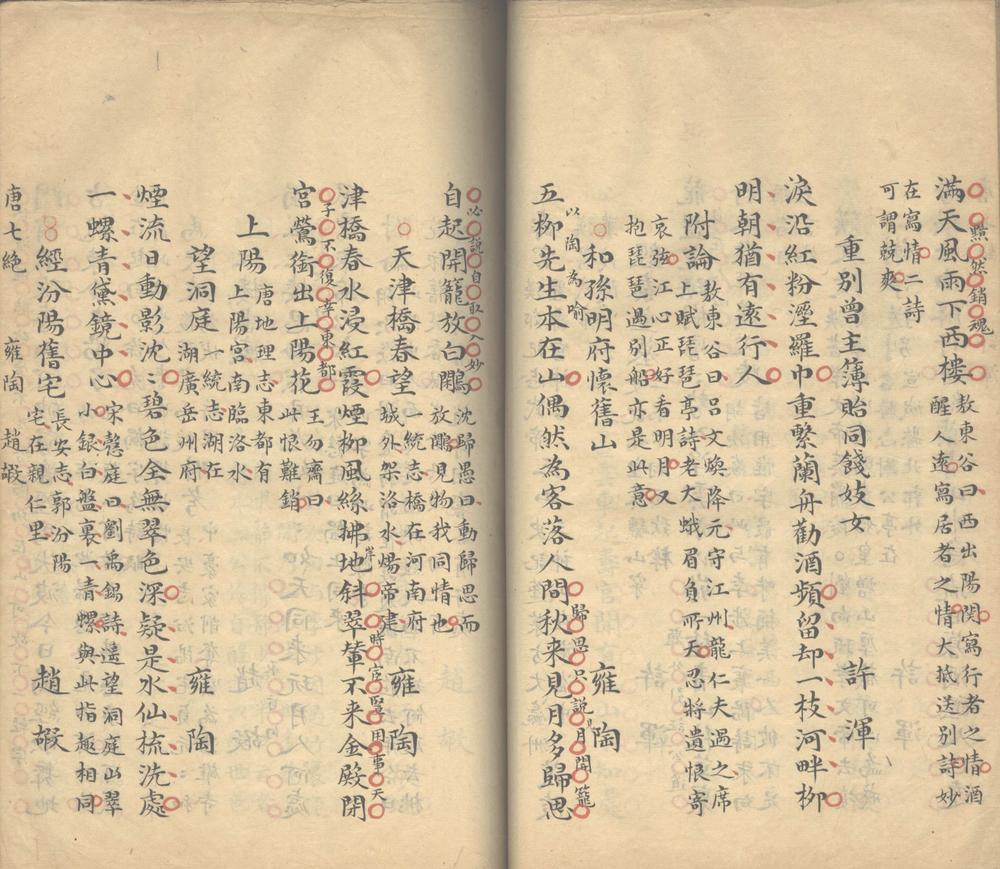 滿天風雨下西樓
敖東谷曰西出陽関寫行者之情酒
醒人遠寫居者之情大抵送別詩妙
黯然銷魂
在寫情二詩
可謂兢爽
重別曾主簿貽同餞妓女　許渾
淚沿紅粉溼羅巾重繫蘭舟勸酒頻留却一枝河畔柳
明朝猶有遠行人
附論
敖東谷曰呂文煥降元守江州龍仁夫過之席
上賦琵琶亭詩老大蛾眉負所天忍將遺恨寄
哀弦江心正好看明月又
抱琵琶過別船亦是此意
和孫明府懷舊山　雍陶
五柳先生本在山偶然為客落人間秋来見月多歸思
以陶為喻
歸思只說月開籠
必說自取入妙
自起開籠放白鷴
沈歸愚曰動歸思而
放鷴見物我同情也
天津橋春望
一統志橋在河南府
城外架洛水煬帝建
雍陶
津橋春水浸紅霞煙柳風絲拂岸斜翠輦不来金殿閉
時宦豎用事天
子不復幸東都
宮鶯銜出上陽花
王勿齋曰
此恨難銷
上陽
唐地理志東都有
上陽宮南臨洛水
望洞庭
一統志湖在
湖廣岳州府
雍陶
煙流日動影沈沈碧色全無翠色深疑是水仙梳洗處
一螺青黛鏡中心
宋慤庭曰劉禹錫詩遥望洞庭山翠
小銀白盤裏一青螺與此指趣相同
經汾陽舊宅
長安志郭汾陽
宅在親仁里
趙嘏
唐七絕　雍陶　趙嘏